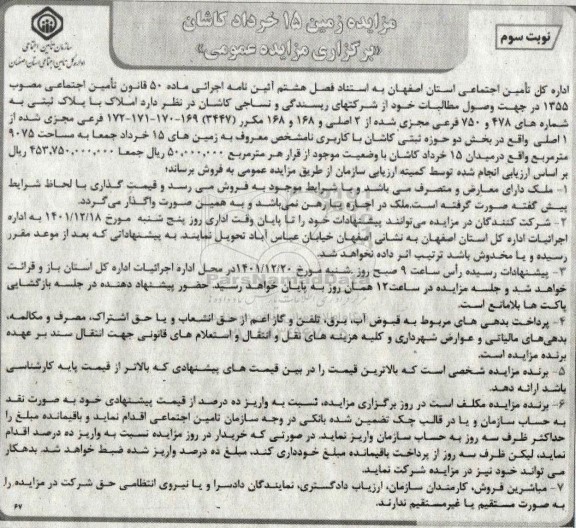 نوبت سوم
مزایده زمین ۱۵ خرداد کاشان
«برگزاری مزایده عمومی»
سازمان تأمین اجتماعی
اداره کل تامین اجتماعی استان اصفهان
اداره کل تأمین اجتماعی استان اصفهان به استناد فصل هشتم آئین نامه اجرائی ماده ۵۰ قانون تأمین اجتماعی مصوب
۱۳۵۵ در جهت وصول مطالبات خود از شرکتهای ریسندگی و نساجی کاشان در نظر دارد املاک با پلاک ثبتی به
شماره های ۴۷۸ و ۷۵۰ فرعی مجزی شده از ۲ اصلی و ۱۶۸ و ۱۶۸ مکرر (۳۴۴۷) ۱۶۹-۱۷۰-۱۷۱-۱۷۲ فرعی مجزی شده از
۱ اصلی واقع در بخش دو حوزه ثبتی کاشان با کاربری نامشخص معروف به زمین های ۱۵ خرداد جمعا به مساحت ۹۰۷۵
مترمربع واقع درمیدان ۱۵ خرداد کاشان با وضعیت موجود از قرار هر مترمربع ۵۰٫۰۰۰٫۰۰۰ ریال جمعا ۴۵۳٫۷۵۰٫۰۰۰٫۰۰۰ ریال
بر اساس ارزیابی انجام شده توسط کمیته ارزیابی سازمان از طریق مزایده عمومی به فروش برساند؛
۱- ملک دارای معارض و متصرف می باشد و با شرایط موجود به فروش می رسد و قیمت گذاری با لحاظ شرایط
پیش گفته صورت گرفته است.ملک در اجاره یا رهن نمی‌باشد و به همین صورت واگذار می‌گردد.
۲- شرکت کنندگان در مزایده می‌توانند پیشنهادات خود را تا پایان وقت اداری روز پنج شنبه مورخ ۱۴۰۱/۱۲/۱۸ به اداره
اجرائیات اداره کل استان اصفهان به نشانی اصفهان خیابان عباس آباد تحویل نمایند. به پیشنهاداتی که بعد از موعد مقرر
رسیده و یا مخدوش باشد ترتیب اثر داده نخواهد شد.
۳- پیشنهادات رسیده رأس ساعت ۹ صبح روز شنبه مورخ ۱۴۰۱/۱۲/۲۰ در محل اداره اجرائیات اداره کل استان باز و قرائت
خواهد شد و جلسه مزایده در ساعت ۱۲ همان روز به پایان خواهد رسید. حضور پیشنهاد دهنده در جلسه بازگشایی
پاکت ها بلامانع است.
۴- پرداخت بدهی های مربوط به قبوض آب، برق، تلفن و گاز اعم از حق انشعاب و یا حق اشتراک، مصرف و مکالمه،
بدهی‌های مالیاتی و عوارض شهرداری و کلیه هزینه های نقل و انتقال و استعلام های قانونی جهت انتقال سند بر عهده
برنده مزایده است.
۵- برنده مزایده شخصی است که بالاترین قیمت را در بین قیمت های پیشنهادی که بالاتر از قیمت پایه کارشناسی
باشد ارائه دهد.
۶- برنده مزایده مکلف است در روز برگزاری مزایده، نسبت به واریز ده درصد از قیمت پیشنهادی خود به صورت نقد
به حساب سازمان و یا در قالب چک تضمین شده بانکی در وجه سازمان تامین اجتماعی اقدام نماید و باقیمانده مبلغ را
حداکثر ظرف سه روز به حساب سازمان واریز نماید. در صورتی که خریدار در روز مزایده نسبت به واریز ده درصد اقدام
نماید، لیکن ظرف سه روز از پرداخت باقیمانده مبلغ خودداری کند، مبلغ ده درصد واریز شده ضبط خواهد شد. بدهکار
می تواند خود نیز در مزایده شرکت نماید.
۷- مباشرین فروش، کارمندان سازمان، ارزیاب دادگستری، نمایندگان دادسرا و یا نیروی انتظامی حق شرکت در مزایده را
به صورت مستقیم یا غیرمستقیم ندارند.
۶۷